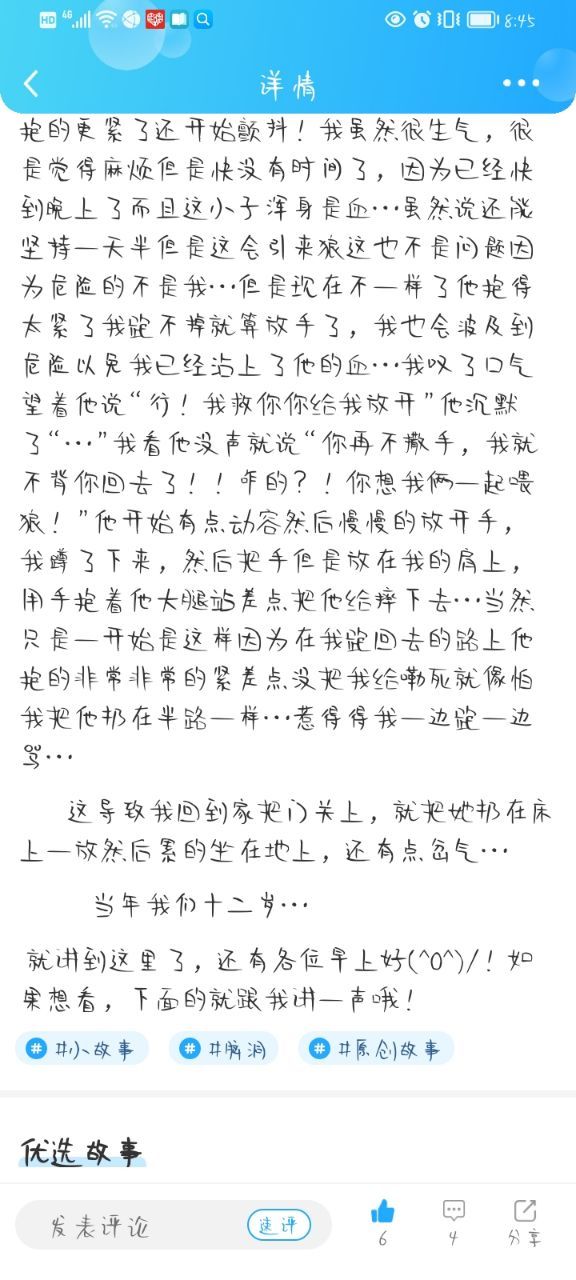 HD 4G 8:45
详情
抱的更紧了还开始颤抖！我虽然很生气，很
是觉得麻烦但是快没有时间了，因为已经快
到晚上了而且这小子浑身是血…虽然说还能
坚持一天半但是这会引来狼这也不是问题因
为危险的不是我…但是现在不一样了他抱得
太紧了我跑不掉就算放手了，我也会波及到
危险以免我已经沾上了他的血…我叹了口气
望着他说“行！我救你你给我放开”他沉默
了“…”我看他没声就说“你再不撒手，我就
不背你回去了！！咋的？！你想我俩一起喂
狼！”他开始有点动容然后慢慢的放开手，
我蹲了下来，然后把手但是放在我的肩上，
用手抱着他大腿站差点把他给摔下去…当然
只是一开始是这样因为在我跑回去的路上他
抱的非常非常的紧差点没把我给勒死就像怕
我把他扔在半路一样…惹得得我一边跑一边
骂…
这导致我回到家把门关上，就把她扔在床
上一放然后累的坐在地上，还有点岔气…
当年我们十二岁…
就讲到这里了，还有各位早上好(^O^)/！如
果想看，下面的就跟我讲一声哦！
# #小故事 # #脑洞 # #原创故事
优选故事
发表评论 速评 6 4 分享